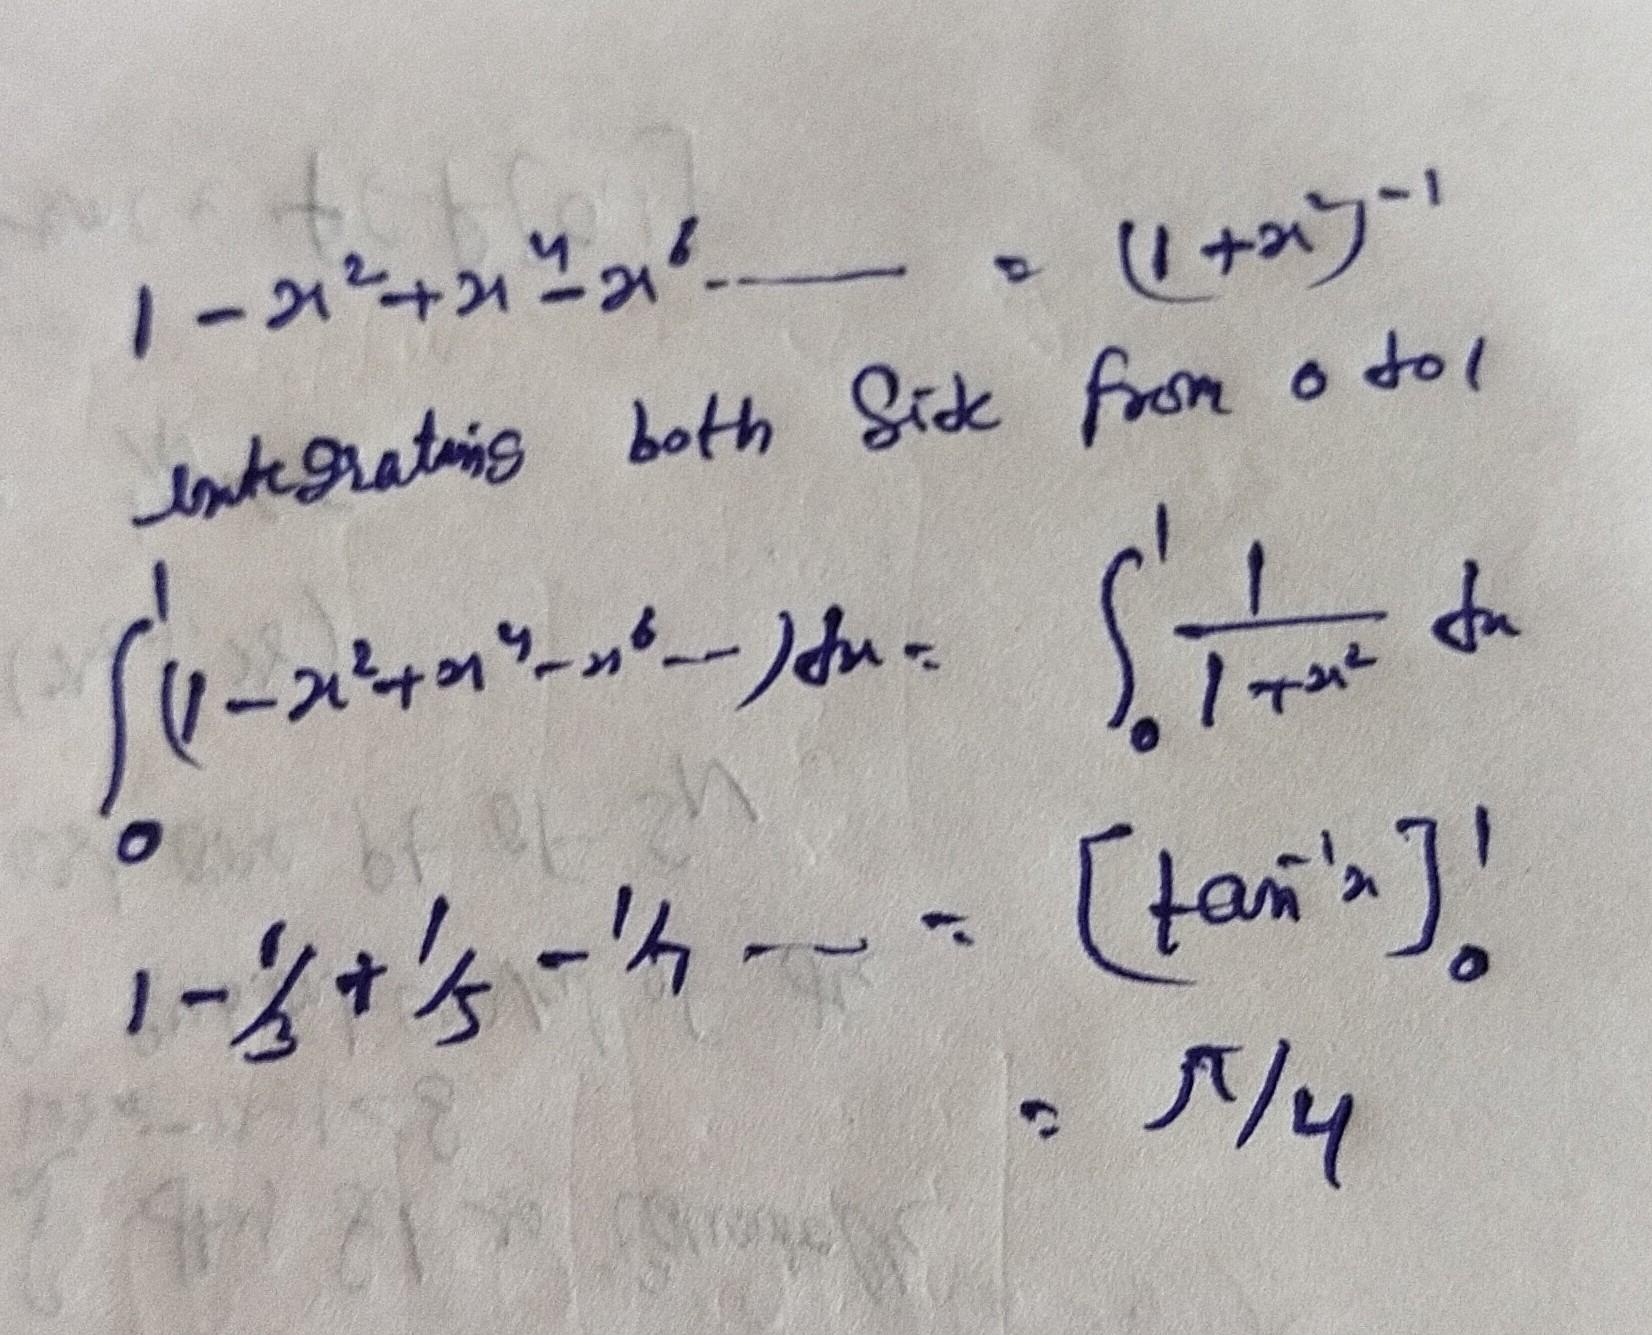 1 - x² + x⁴ - x⁶ ------ = (1 + x²)⁻¹
integrating both Side from 0 to 1
∫₀¹ (1 - x² + x⁴ - x⁶ ---) dx = ∫₀¹ 1/(1 + x²) dx
1 - 1/3 + 1/5 - 1/7 --- = [tan⁻¹x]₀¹
= π/4